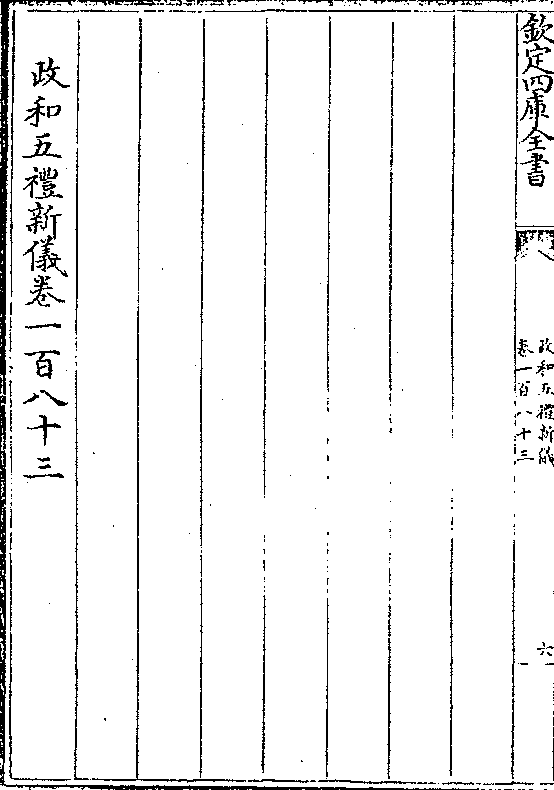 欽定四庫全書
政和五禮新儀
卷一百八十三
六
政和五禮新儀卷一百八十三